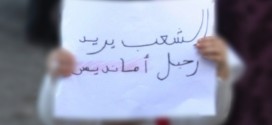 الشعب يريد
رحيل أمانديس